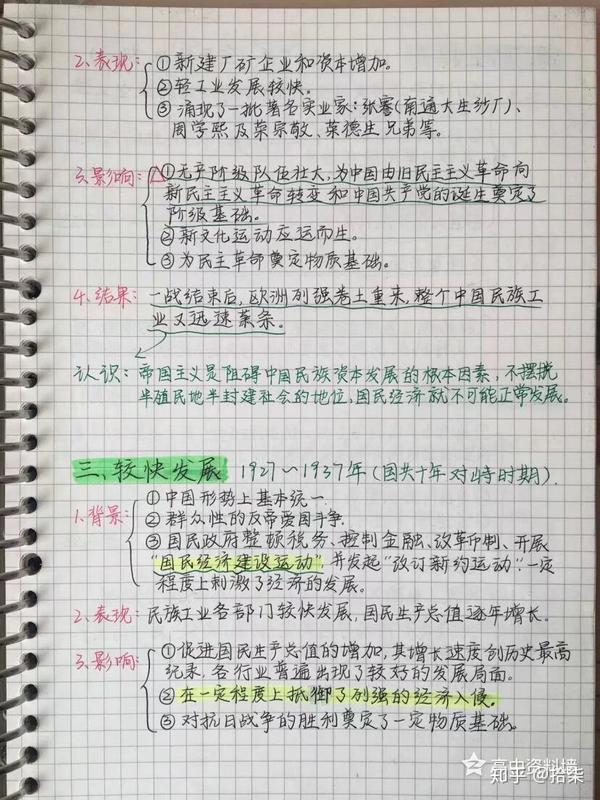 2、表现: ①新建厂矿企业和资本增加。
②轻工业发展较快。
③涌现了一批著名实业家:张謇(南通大生纱厂)、
周学熙及荣宗敬、荣德生兄弟等。
3、影响: △①无产阶级队伍壮大,为中国由旧民主主义革命向
新民主主义革命转变和中国共产党的诞生奠定了
阶级基础。
②新文化运动应运而生。
③为民主革命奠定物质基础。
4、结果: 一战结束后,欧洲列强卷土重来,整个中国民族工
业又迅速萧条。
认识: 帝国主义是阻碍中国民族资本发展的根本因素,不摆脱
半殖民地半封建社会的地位,国民经济就不可能正常发展。
三、较快发展 1927~1937年(国共十年对峙时期).
1、背景: ①中国形势上基本统一
②群众性的反帝爱国斗争.
③国民政府整顿税务、控制金融、改革币制、开展
"国民经济建设运动",并发起"改订新约运动".一定
程度上刺激了经济的发展。
2、表现: 民族工业各部门较快发展,国民生产总值逐年增长.
3、影响: ①促进国民生产总值的增加,其增长速度创历史最高
纪录,各行业普遍出现了较好的发展局面。
②在一定程度上抵御了列强的经济入侵。
③对抗日战争的胜利奠定了一定物质基础。
高中资料墙
知乎 @拾柒